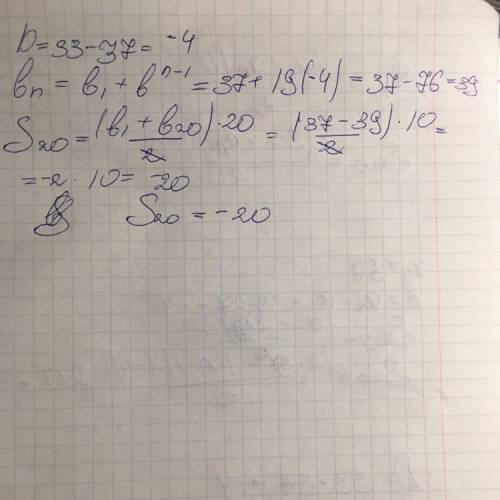 D = 33 - 37 = -4
bₙ = b₁ + bⁿ⁻¹ = 37 + 19(-4) = 37 - 76 = 39
S₂₀ = (b₁ + b₂₀) · 20 / 2 = (37 - 39) · 10 / 2 =
= -2 · 10 = 20
S₂₀ = -20